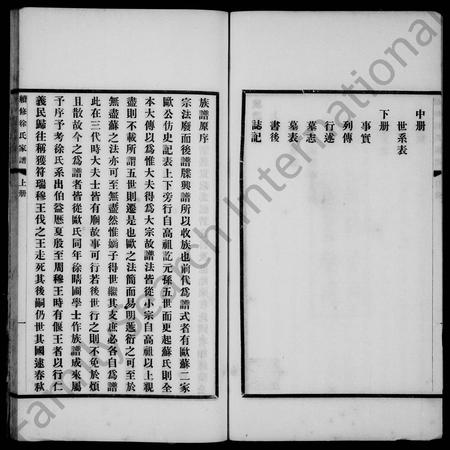 中册
世系表
下册
事實
列傳
行述
墓志
墓表
書後
誌記
族譜原序
宗法廢而後譜牒興譜所以收族也前代為譜式者有歐蘇二家
歐公仿史記表上下旁行自高祖訖元孫五世而更起蘇氏則全
本大傳以為惟大夫得為大宗故譜法皆從小宗自高祖以上親
盡則不載所謂五世則遷是也歐之法簡而易明蕃衍之可至於
無盡蘇之法亦可至無盡然惟嫡子得世繼其支庶必各自為譜
此在三代時大夫士皆有廟故事可行若後世行之則不免於煩
且散故今之為譜者皆從歐氏同年徐晴圃學士作族譜成來屬
予序予考徐氏系出伯益歷夏殷至周穆王時有偃王者以行仁
義民歸往稱獲符瑞穆王伐之王走死其後嗣仍世其國逮春秋
續修徐氏家譜 上册
FamilySearch International